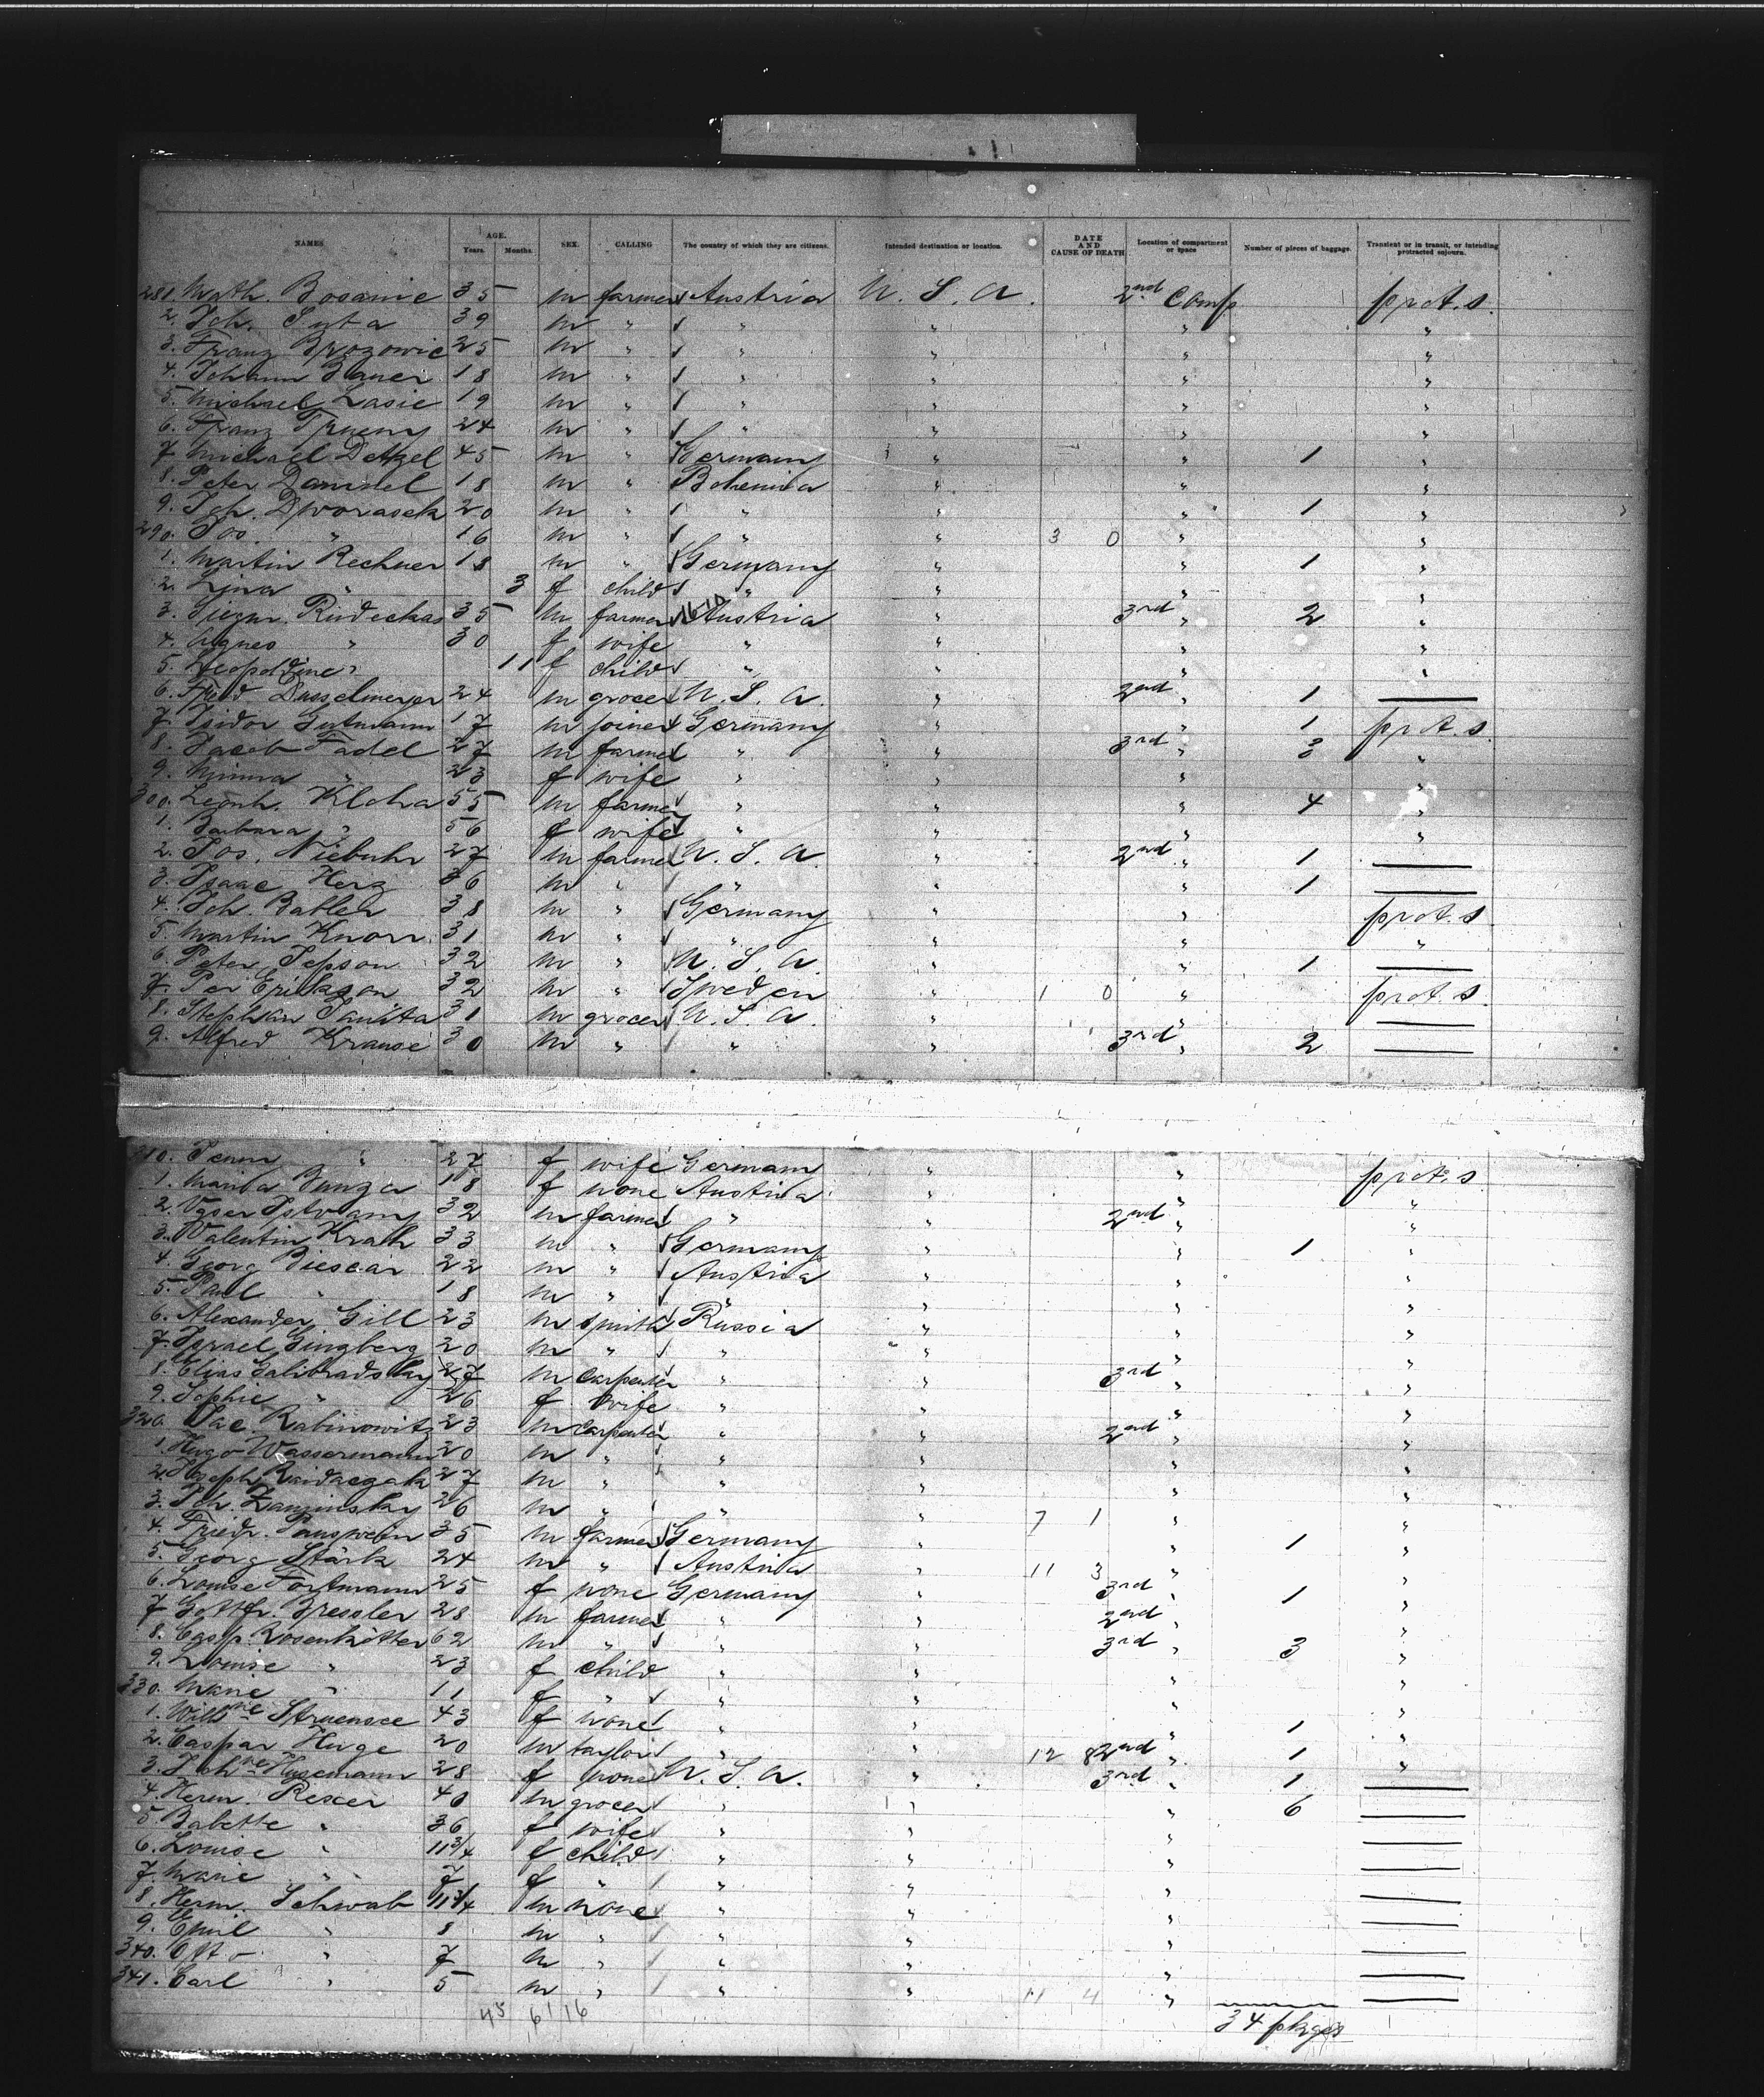 NAMES AGE. Years. Months. SEX. CALLING The country of which they are citizens. Intended destination or location. DATE AND CAUSE OF DEATH Location of compartment or space Number of pieces of baggage. Transient or in transit, or intending protracted sojourn.
281. Math. Bosanic 35 m farmer Austria U. S. A. 2nd Comp prot. s.
2. Joh. Suta 39 m " " " " "
3. Franz Brozowic 25 m " " " " "
4. Johann Bauer 18 m " " " " "
5. Michael Lasic 19 m " " " " "
6. Franz 24 m " " " " "
7. Michael Detzel 45 m " Germany " " 1 "
8. Peter 18 m " Bohemia " " "
9. Joh. Dworasek 20 m " " " " 1 "
290. Jos. " 16 m " " " 3 0 " "
1. Martin Rechner 18 m " Germany " " 1 "
2. Lina " 3 f child " " " "
3. Siegm. Rudeckas 35 m farmer Austria " 3rd " 2 "
4. Agnes " 30 f wife " " " "
5. Leopoldine " 11 f child " " " "
6. Fried. Dusselmeyer 24 m grocer U. S. A. " 2nd " 1 —
7. Isidor Gutmann 17 m joiner Germany " " 1 prot. s.
8. Jacob Fadel 27 m farmer " " 3rd " 3 "
9. Minna " 23 f wife " " " "
300. Leonh. Kloha 55 m farmer " " " 4 "
1. Barbara " 56 f wife " " " "
2. Jos. Niebuhr 27 m farmer U. S. A. " 2nd " 1 —
3. Isaac Herz 36 m " " " " 1 —
4. Joh. Babler 38 m " Germany " " prot. s
5. Martin Knorr 31 m " " " " "
6. Peter Jepson 32 m " U. S. A. " " 1 —
7. Per Erikson 32 m " Sweden " 1 0 " prot. s.
8. Stephan Sanita 31 m grocer U. S. A. " " —
9. Alfred Krause 30 m " " " 3rd " 2 —
310. Jenny " 27 f wife Germany " " prot. s
1. Maria Bunza 18 f none Austria " " "
2. Istvany 32 m farmer " " 2nd " "
3. Valentin Krath 33 m " Germany " " 1 "
4. Georg Biescar 22 m " Austria " " "
5. Paul " 18 m " " " " "
6. Alexander Gill 23 m smith Russia " " "
7. Israel Gingberg 20 m " " " " "
8. Elias Galibradsky 27 m carpenter " " 3rd " "
9. Sophie " 26 f wife " " " "
320. Isac. Rabinowitz 23 m carpenter " " 2nd " "
1. Hugo Wassermann 20 m " " " " "
2. Joseph 27 m " " " " "
3. Joh. Zaminsky 26 m " " " 7 1 " "
4. Friedr. 35 m farmer Germany " " 1 "
5. Georg Stärk 24 m " Austria " 11 3 " "
6. Louise Fortmann 25 f none Germany " 3rd 1 "
7. Gottfr. Bressler 28 m farmer " " 2nd " "
8. Casp. Rosenkötter 62 m " " " 3rd " 3 "
9. Louise " 23 f child " " " "
330. Marie " 11 f " " " " "
1. Wilhne Struensee 43 f none " " " 1 "
2. Caspar Huge 20 m taylor " " 12 8 2nd " 1 "
3. Johne Husemann 28 f none U. S. A. " 3rd " 1 —
4. Herm. Rexer 40 m grocer " " " 6 —
5. Babette " 36 f wife " " " —
6. Louise " 11 3/4 f child " " " —
7. Marie " 7 f " " " " —
8. Herm. Schwab 11 3/4 m none " " " —
9. Emil " 8 m " " " " —
340. Otto " 7 m " " " " —
341. Carl " 5 m " " " 11 4 " —
45 6 1 16 34 pkges